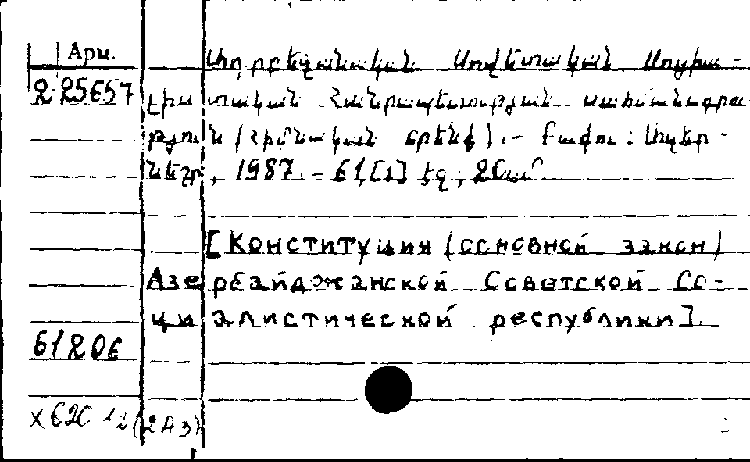 Арм.
Ադրբեջանական Սովետական Սոցիա-
2 25657 լիստական Հանրապետության սահմանադրա-
թյուն (հիմնական օրենք). - Բաքու : Ազեր-
նեշր, 1987. - 61,[1] էջ ; 20 սմ
[Конституция (основной закон)
Азербайджанской Советской Со-
циалистической республики].
61206
X620.12(2Аз)